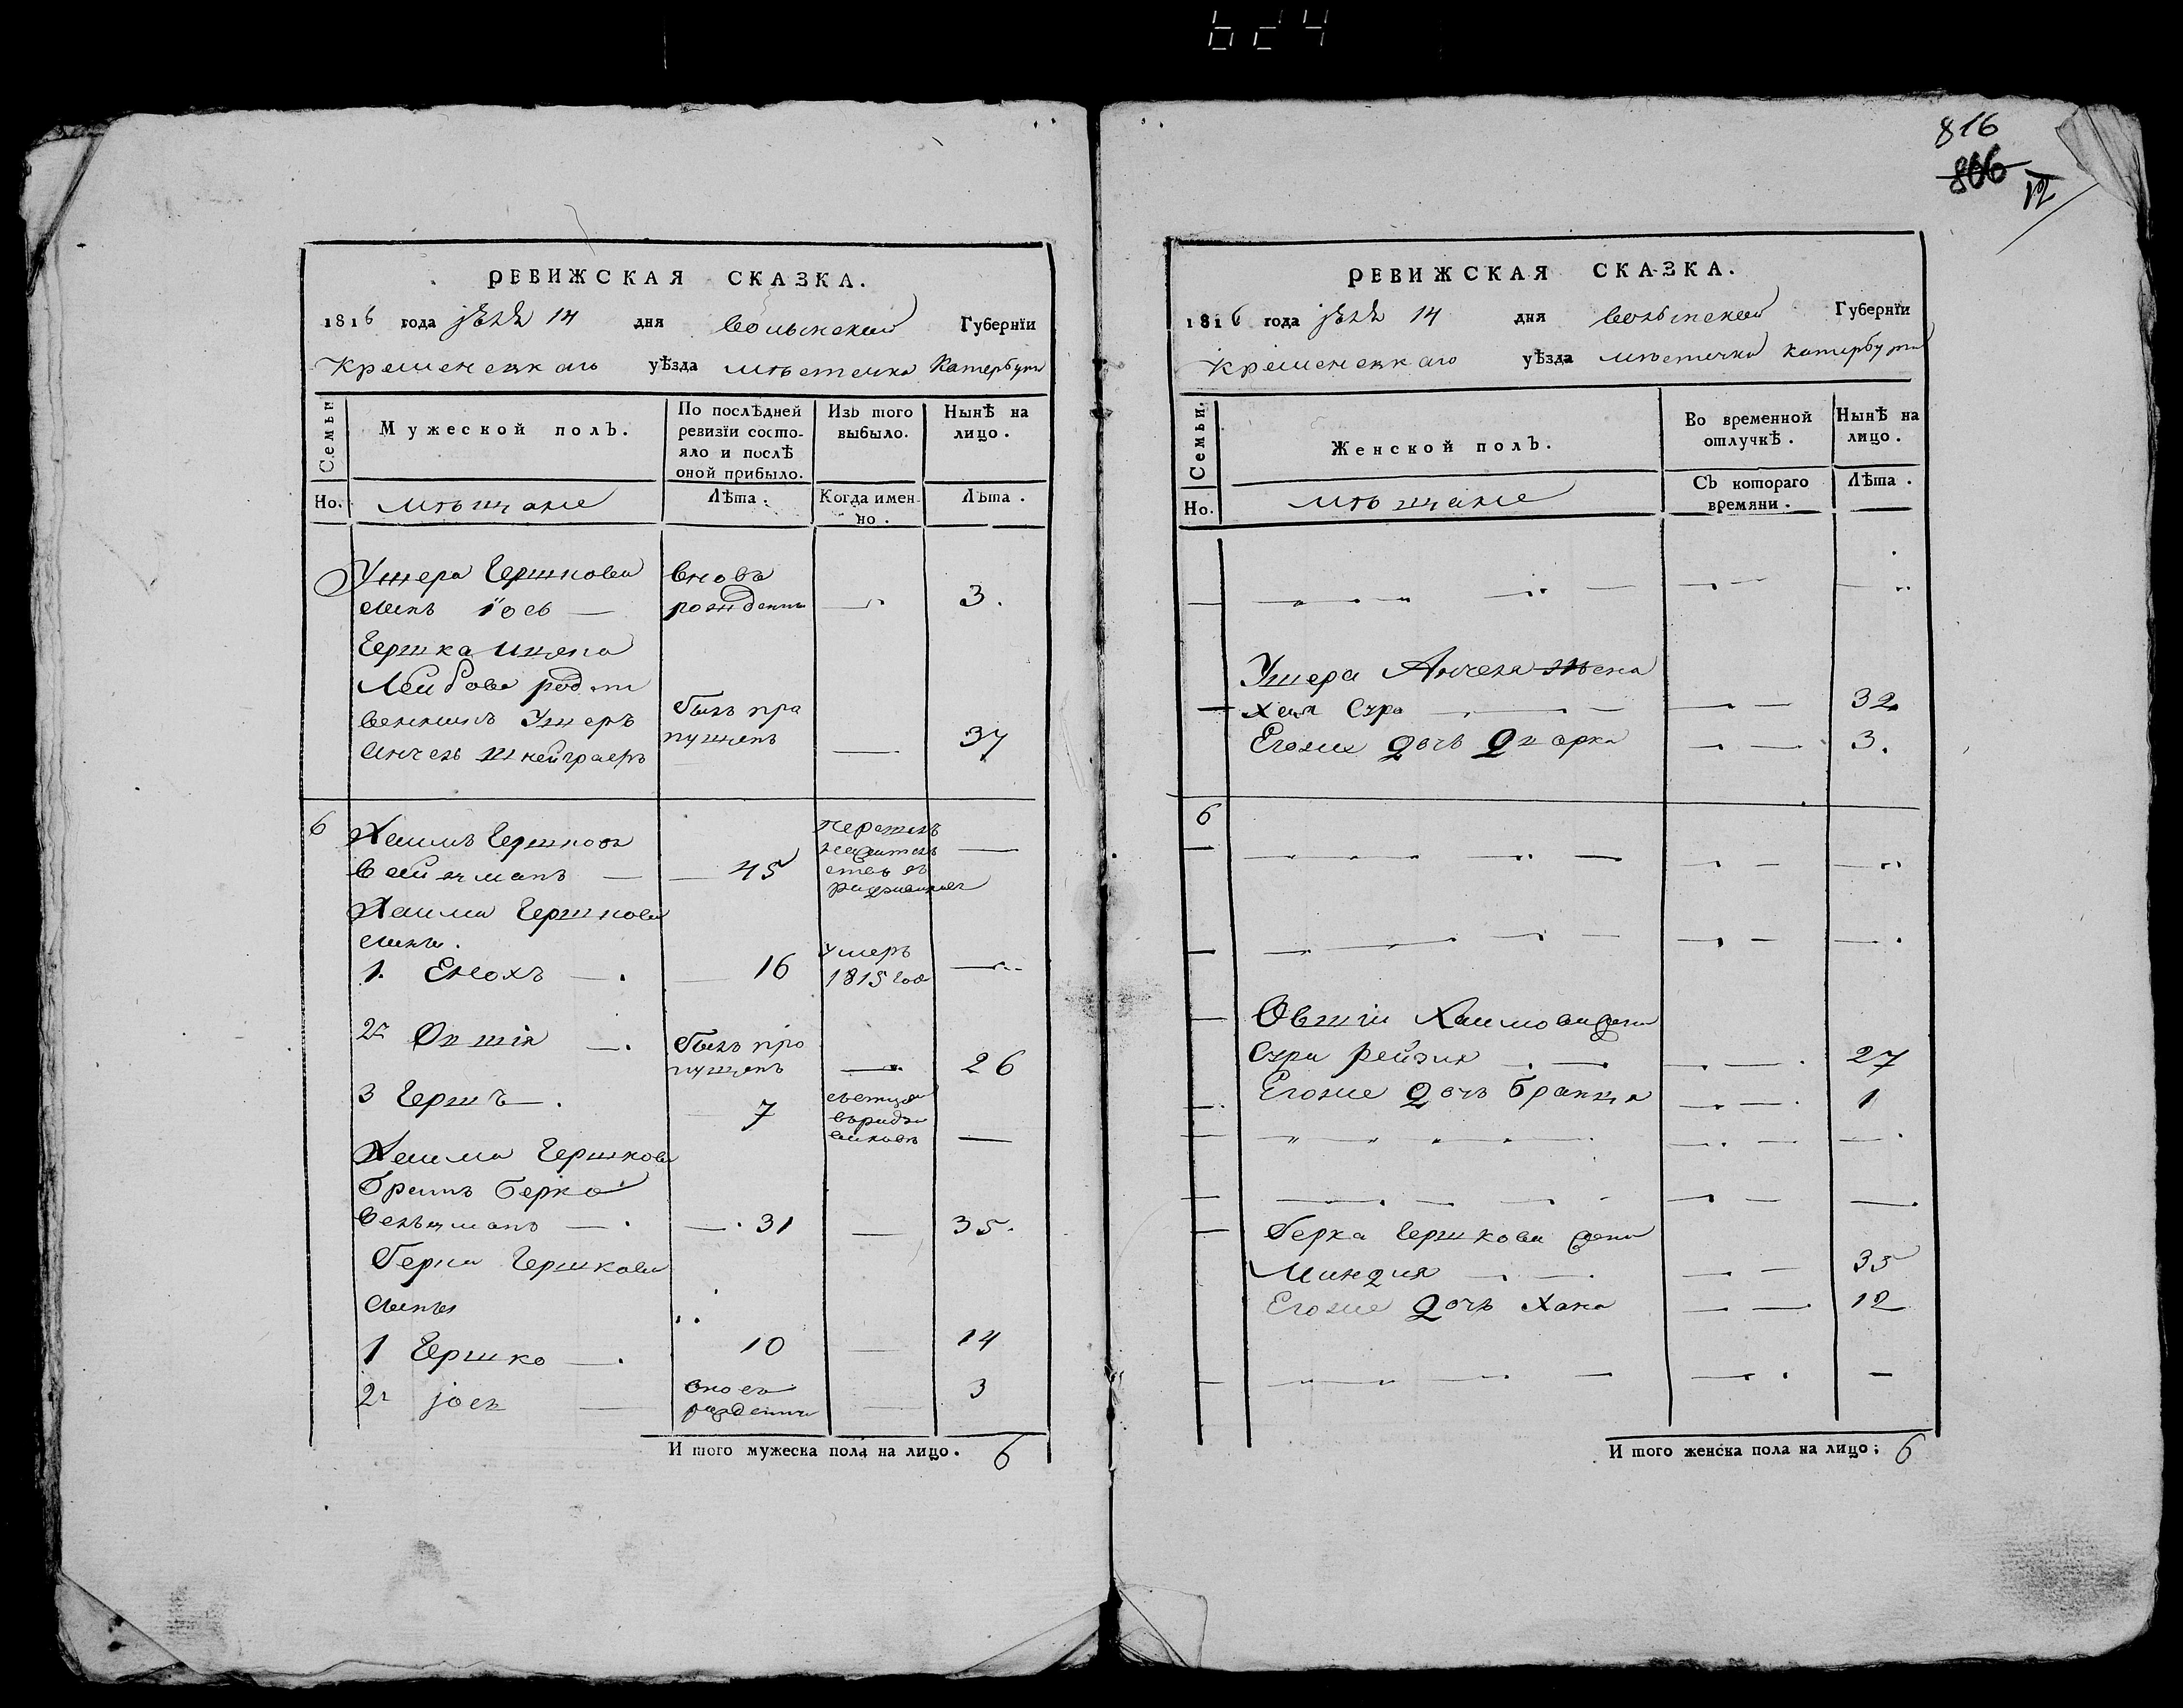 624
816
806
12
РЕВИЖСКАЯ СКАЗКА.
1816 года 14 дня Волынской Губернїи
Кременецкаго уѣзда мѣстечка Катербурга
Семьи
Мужеской полъ.
По послѣдней ревизїи состо-
яло и послѣ
оной прибыло.
Изъ того
выбыло.
Нынѣ на
лицо.
Но.
мѣщане
Лѣта.
Когда имен-
но.
Лѣта.
Ушера Гершкова вновь
сынъ Іось — рожденъ — 3.
Гершка
Лейбова
Ушеръ былъ про
Анчель Шнейграеръ пущенъ — 37
6 Хаимъ Гершковъ
Вайцманъ — 45 —
Хаима Гершкова
сыны.
1. Енохъ — 16 умеръ 1815 год —
2й Овшія — былъ про
пущенъ — 26
3 Гершъ — 7 —
Хаима Гершкова
братъ Берко
Вейцманъ — 31 — 35.
Берка Гершкова
сыны
1 Гершко — 10 — 14
2й Іось — вновь рожденъ — 3
И того мужеска пола на лицо. 6
РЕВИЖСКАЯ СКАЗКА.
1816 года 14 дня Волынской Губернїи
Кременецкаго уѣзда мѣстечка Катербурга
Семьи.
Женской полъ.
Во временной
отлучкѣ.
Нынѣ на
лицо.
Но.
мѣщане
Съ котораго
времяни.
Лѣта.
Ушера Анчеля жена
Хая Сура — 32
Егоже дочь Дворка — 3.
6
Овшіи Хаимова жена
Сура Рейзия — 27
Егоже дочь Бранця — 1
Берка Гершкова жена
Миндия — 35
Егоже дочь Хана — 12
И того женска пола на лицо; 6